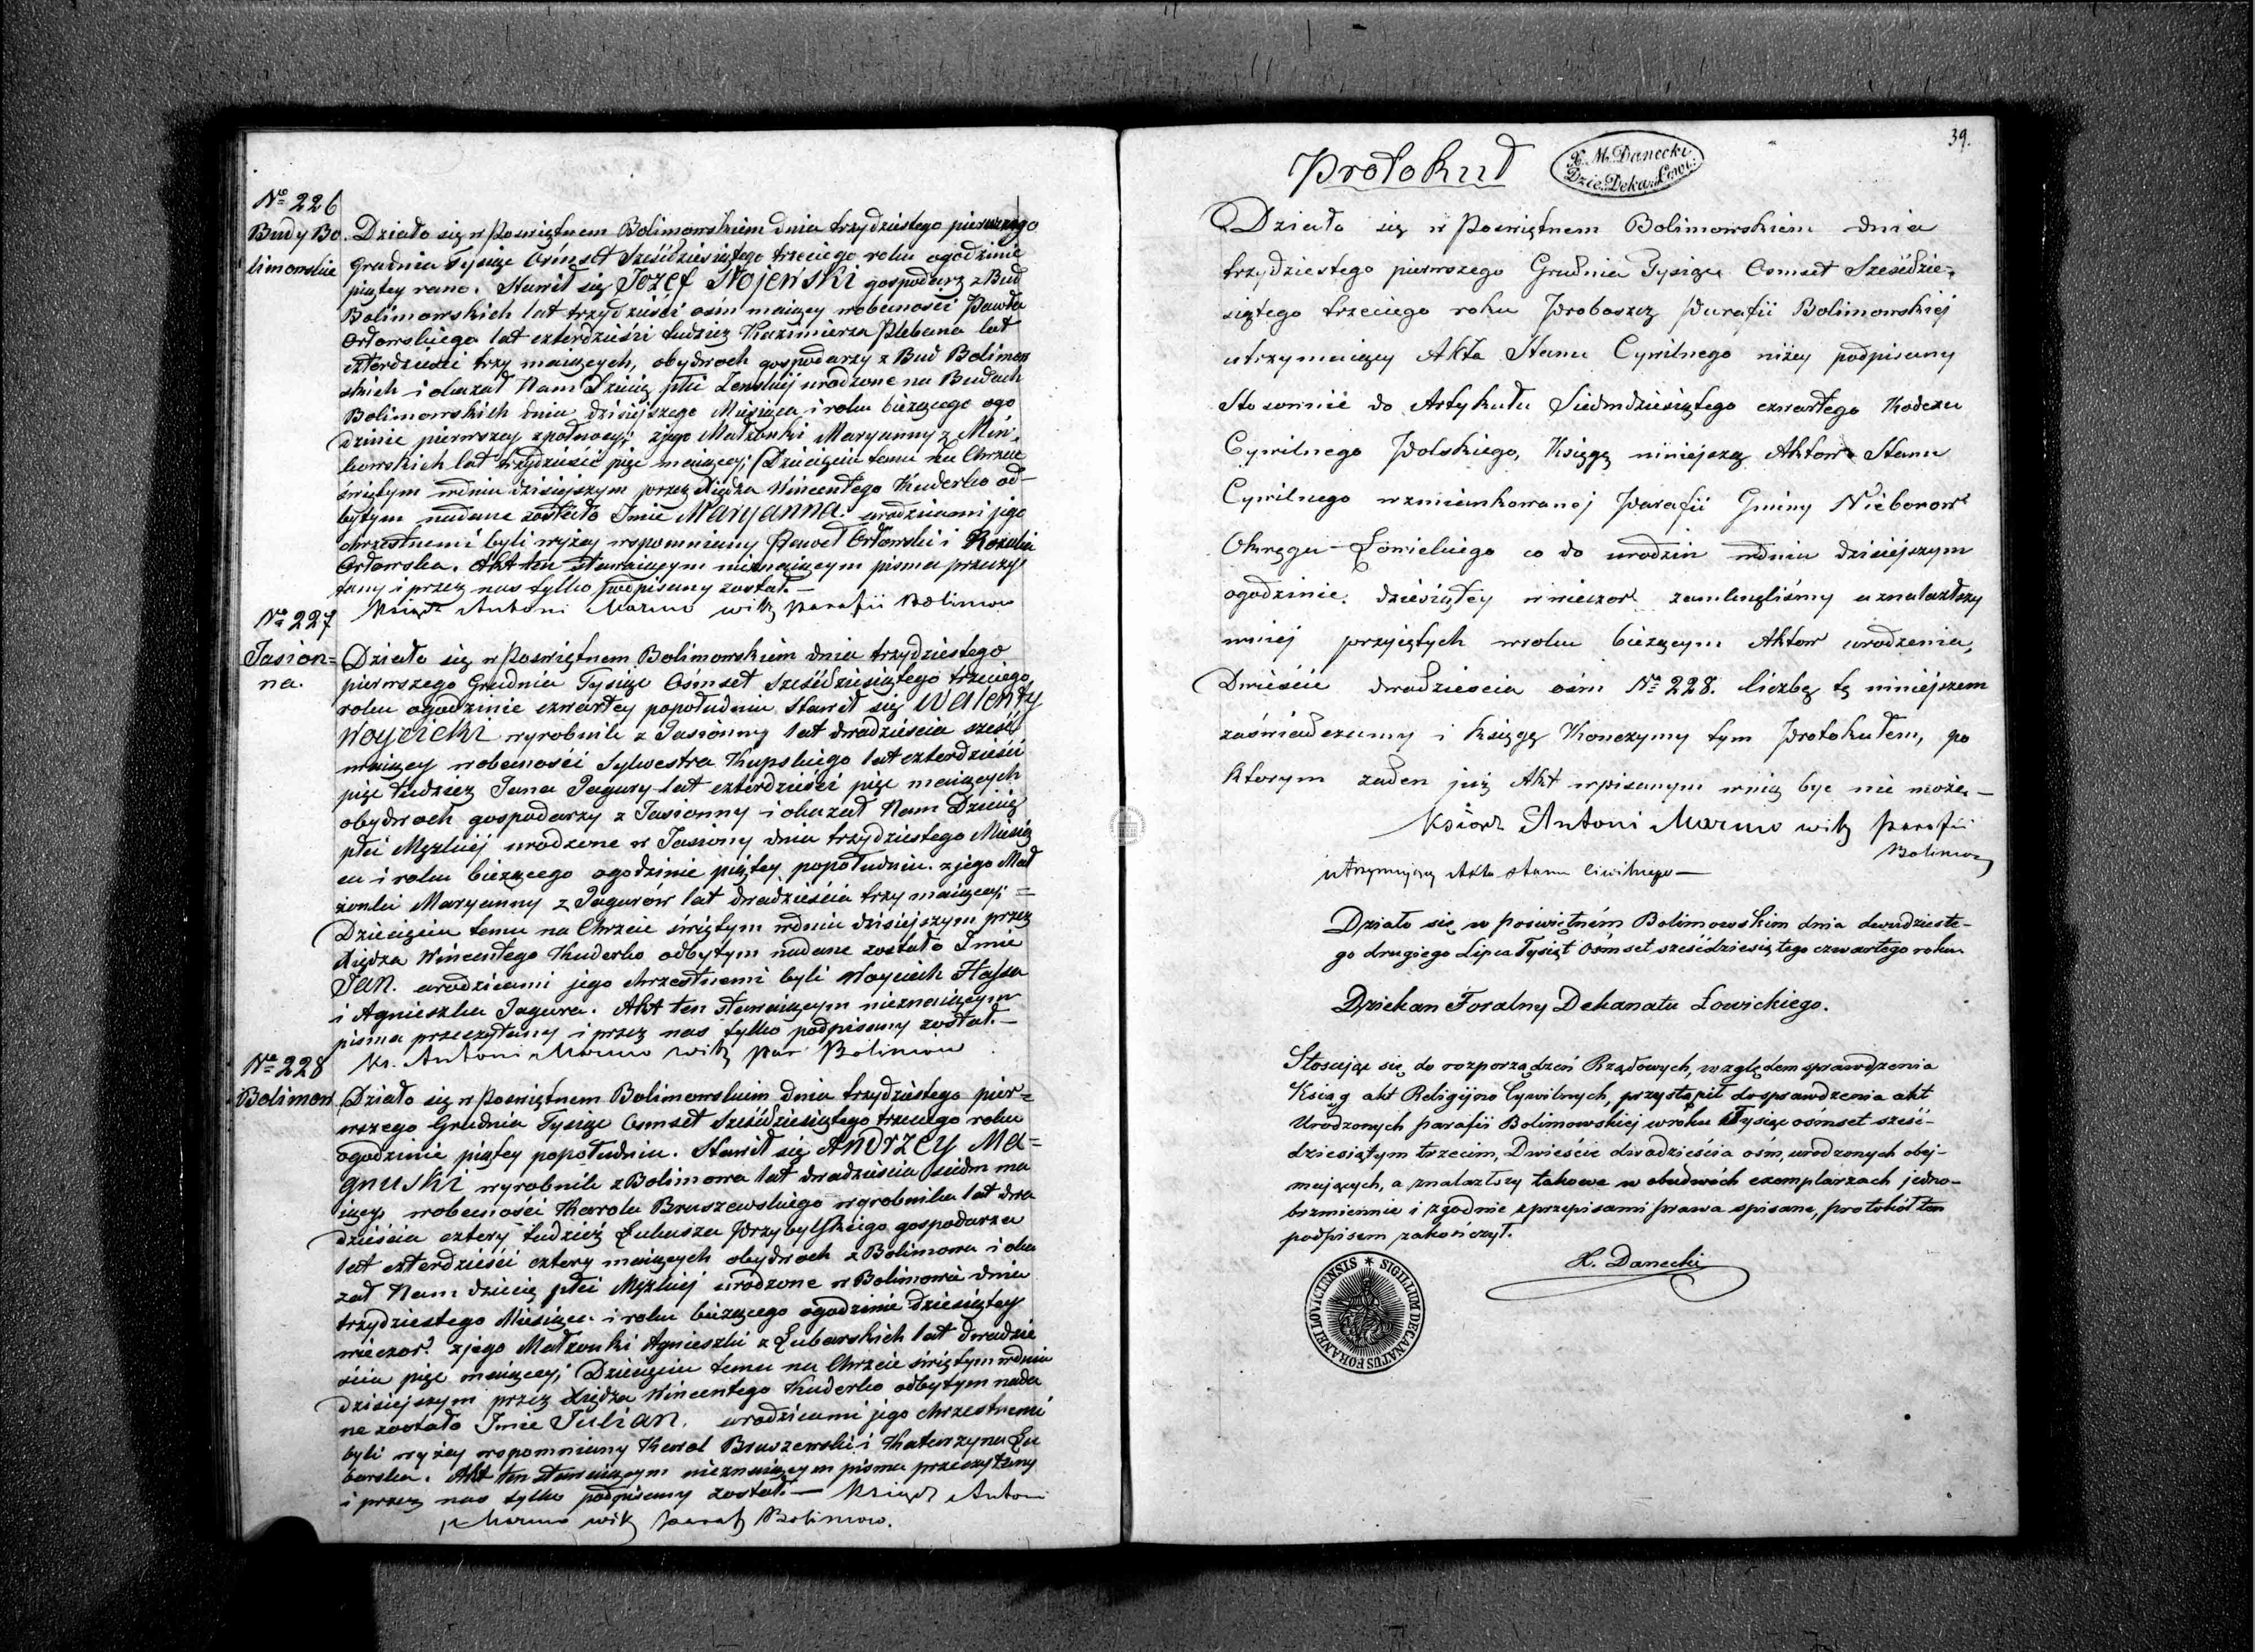 № 226
Budy Bo
limowskie
Działo się w Poswiętnem Bolimowskiem dnia trzydziestego pierwszego
Grudnia Tysiąc Osmset Sześćdziesiątego trzeciego roku ogodzinie
piątey rano. Stawił się Jozef Stojewski gospodarz z Bud
Bolimowskich lat trzydzieści osm maiący wobecności Pawła
Orłowskiego lat czterdzieści tudzież Kazimierza Plebana lat
czterdzieści trzy maiących, obydwoch gospodarzy z Bud Bolimow
skich i okazał Nam Dziecię płci Zenskiej urodzone na Budach
Bolimowskich dnia dzisiejszego Miesiąca i roku bieżącego ogo
dzinie pierwszey zpołnocy; zjego Małżonki Maryanny z Min,
kowskich lat trzydzieści pięc maiącey; Dziecięciu temu na Chrzcie
świętym wdniu dzisiejszym przez Xiędza Wincentego Kuderko od-
bytym nadane zostało Imie Maryanna. urodzicami jego
chrzestnemi byli wyżey wspomniany Paweł Orłowski i Rozalia
Orłowska. Akt ten stawaiącym nieznaiącym pisma przeczy
tany i przez nas tylko podpisany został.—
Ksiądz Antoni Marmo wik parafii Bolimow
№ 227
Jasion=
na.
Działo się w Poswiętnem Bolimowskiem dnia trzydziestego
pierwszego Grudnia Tysiąc Osmset Sześćdziesiątego trzeciego
roku ogodzinie czwartey popołudniu stawił się Walenty
Woycicki wyrobnik z Jasionny lat dwadzieścia sześć
maiący wobecności Sylwestra Kupskiego lat czterdzieści
pięc tudzież Jana Jagury lat czterdzieści pięc maiących
obydwoch gospodarzy z Jasionny i okazał Nam Dziecię
płci Męzkiej urodzone w Jasiony dnia trzydziestego Miesią
ca i roku bieżącego ogodzinie piątey popołudniu. z jego Mał
żonki Maryanny z Jagurów lat dwadzieścia trzy maiącey; =
Dziecięciu temu na Chrzcie świętym wdniu dzisiejszym przez
Xiędza Wincentego Kuderko odbytym nadane zostało Imie
Jan. urodzicami jego chrzestnemi byli Woyciech
i Agnieszka Jagura. Akt ten stawaiącym nieznaiącym
pisma przeczytany i przez nas tylko podpisany został.—
Ks. Antoni Marmo wik par Bolimow
№ 228
Bolimow
Działo się w Poswiętnem Bolimowskiem dnia trzydziestego pier=
wszego Grudnia Tysiąc Osmset Sześćdziesiątego trzeciego roku
ogodzinie piątey popołudniu. Stawił się Andrzey Ma=
gnuski wyrobnik z Bolimowa lat dwadzieścia siedm ma
iący wobecności Karola Bruszewskiego wyrobnika lat dwa
dzieścia cztery tudzież Łukasza Przybylskiego gospodarza
lat czterdzieści cztery maiących obydwoch z Bolimowa i oka
zał Nam dziecię płci Męzkiej urodzone w Bolimowie dnia
trzydziestego Miesiąca i roku bieżącego ogodzinie dziesiątey
wieczor. zjego Małżonki Agnieszki z Lubarskich lat dwadzie
ścia pięc maiącey; Dziecięciu temu na Chrzcie świętym wdniu
dzisiejszym przez Xiędza Wincentego Kuderko odbytym nada
ne zostało Imie Julian. urodzicami jego chrzestnemi
byli wyżey wspomniany Karol Bruszewski i Katarzyna Lu
barska. Akt ten stawaiącym nieznaiącym pisma przeczytany
i przez nas tylko podpisany został.— Ksiądz Antoni
Marmo wik paraf Bolimow.
39.
Protokuł
X. M. Danecki
Dzie. Deka. Łowi.
Działo się w Poswiętnem Bolimowskiem dnia
trzydziestego pierwszego Grudnia Tysiąc Osmset Sześćdzie-
siątego trzeciego roku Proboszcz Parafii Bolimowskiej
utrzymaiący Akta Stanu Cywilnego niżey podpisany
Stosownie do Artykułu Siedmdziesiątego czwartego Kodexu
Cywilnego Polskiego, Księgę niniejszą Aktow Stanu
Cywilnego wzmiankowanej Parafii Gminy Nieborow
Okręgu Łowickiego co do urodzin wdniu dzisiejszym
ogodzinie dziesiątey wwieczor zamknęliśmy a znalazłszy
wniej przyiętych wroku bieżącym Aktow urodzenia,
Dwieście dwadzieścia osm № 228. liczbę tę niniejszem
zaświadczamy i księgę Konczymy tym Protokułem, po
ktorym zaden już Akt wpisanym wnię byc nie może.—
Ksiądz Antoni Marmo wik parafii
Bolimow
utrzymujący Akta stanu Ciwilnego —
Działo się w poświętném Bolimowskim dnia dwudzieste-
go drugiego Lipca Tysiąt Ośmset sześćdziesiątego czwartego roku
Dziekan Foralny Dekanatu Łowickiego.
Stosując się do rozporządzeń Rządowych, względem sprawdzenia
Ksiąg akt Religijno Cywilnych, przystąpił do sprawdzenia akt
Urodzonych parafii Bolimowskiej w roku Tysiąc ośmset sześć-
dziesiątym trzecim, Dwieście dwadzieścia ośm, urodzonych obej-
mających, a znalazłszy takowe w obudwóch exemplarzach jedno-
brzmiennie i zgodnie z przepisami prawa spisane, protokół ten
podpisem zakończył.
X. Danecki
SIGILLUM DECANATUS FORANEI LOVICIENSIS